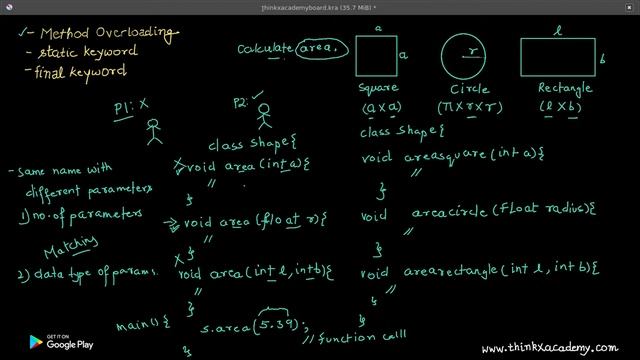 thinkxacademyboard.kra (35.7 MiB) *
✓- Method Overloading
- static keyword
- final keyword
Calculate area.
a
a
r
l
b
Square
Circle
Rectangle
(a x a)
(π x r x r)
(l x b)
P1: x
P2: ✓
class Shape{
class Shape{
- Same name with
different parameters
1) no. of parameters
Matching
2) data type of params.
x void area (int a){
//
}
void area (float r){
//
}
x void area (int l, int b){
//
}
void areasquare (int a){
//
}
void areacircle (float radius){
//
}
void arearectangle (int l, int b){
//
}
}
main() {
s.area(5.39);
//function call
}
GET IT ON
Google Play
www.thinkxacademy.com